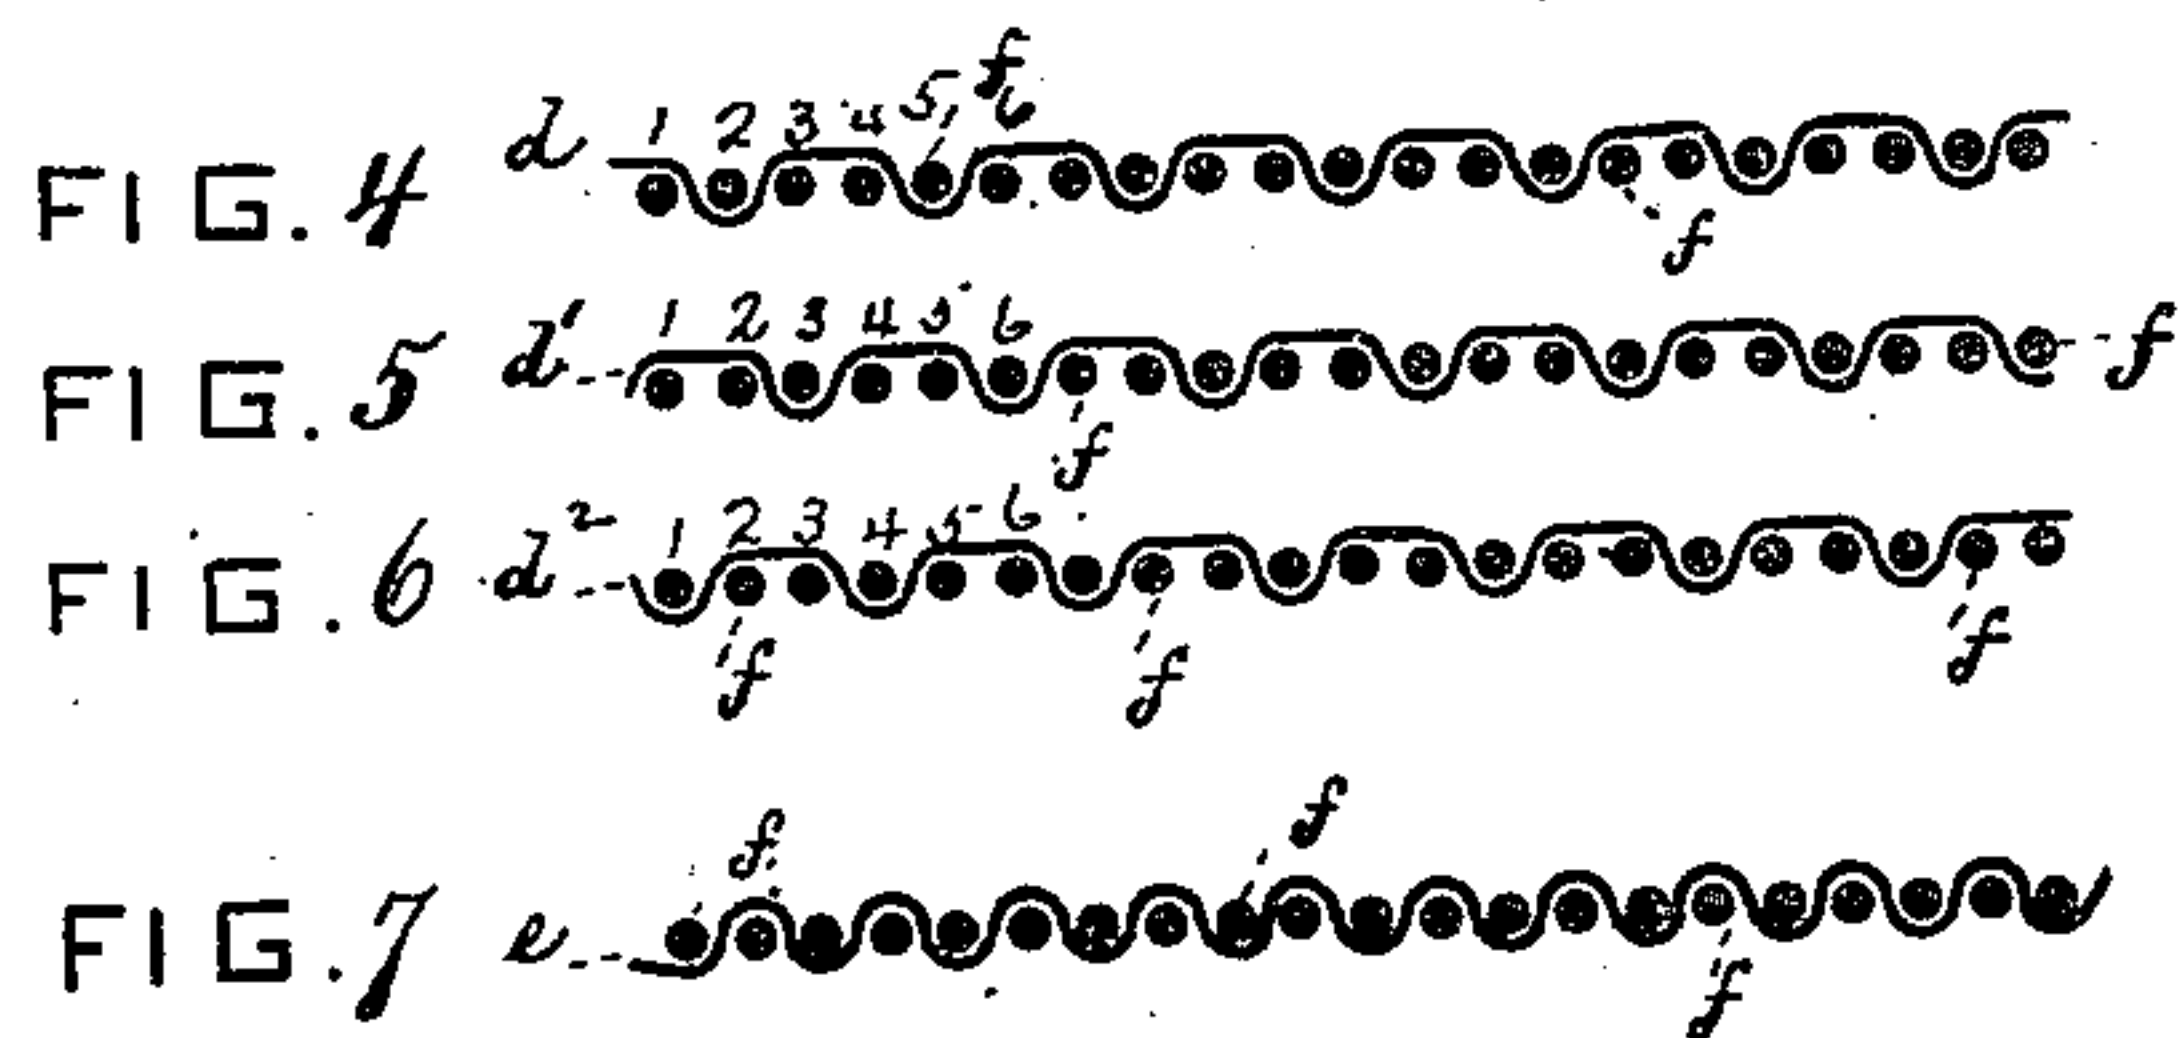 f
FIG. 4 d 1 2 3 4 5 6
f
FIG. 5 d' 1 2 3 4 5 6 f
f
FIG. 6 d² 1 2 3 4 5 6
f f f
f f
FIG. 7 e
f